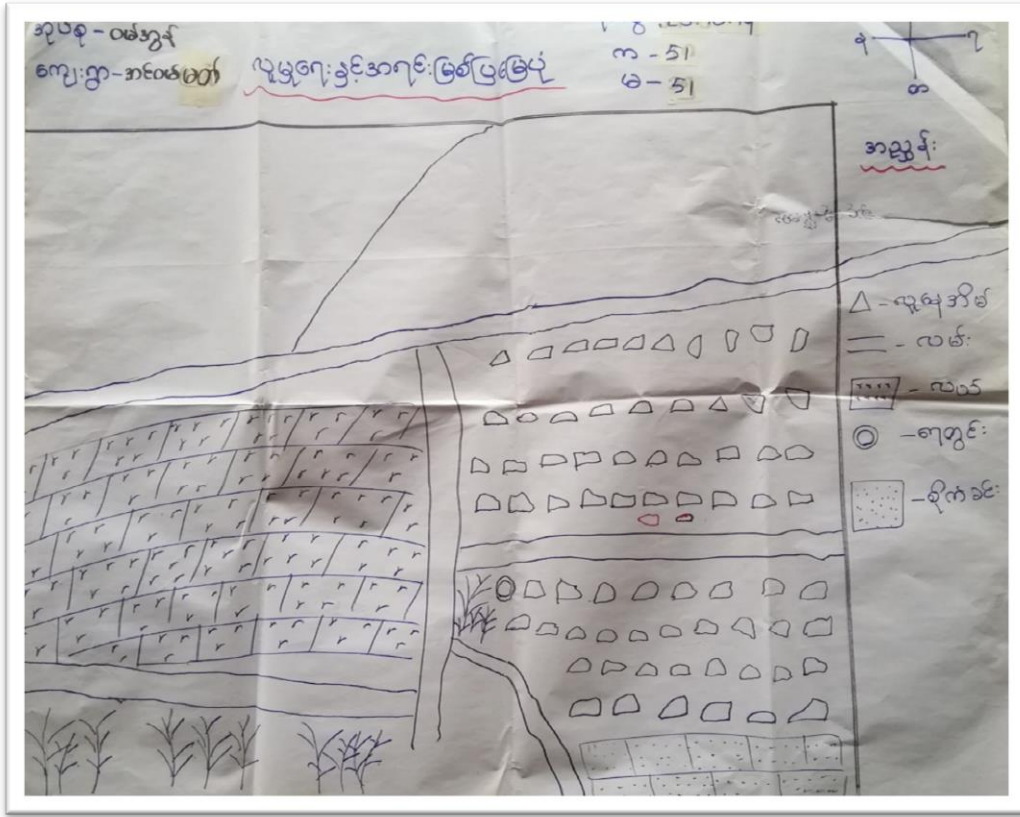 အုပ်စု - ဝမ်အွန်
ကျေးရွာ - အင်ဝမ်မတ်
လူမှုရေးနှင့်အရင်းမြစ်ပြမြေပုံ
က - 51
မ - 51
အညွှန်း
△ - လူနေအိမ်
= - လမ်း
- လယ်
- ရေတွင်း
- စိုက်ခင်း